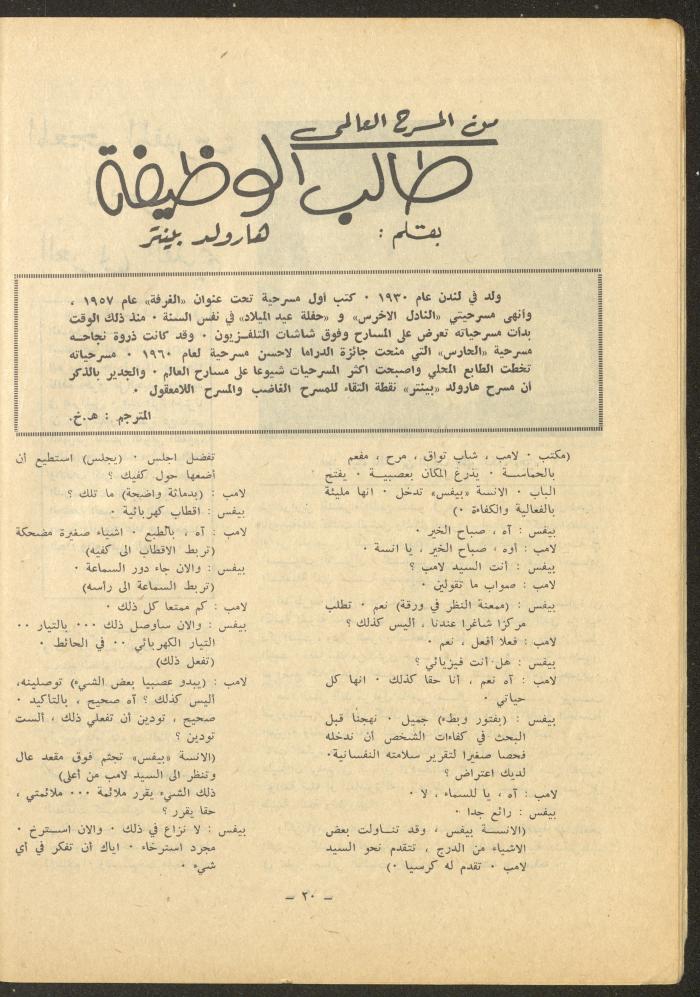 من المسرح العالمي
طالب الوظيفة
بقلم : هارولد بينتر
ولد في لندن عام ١٩٣٠ ٠ كتب أول مسرحية تحت عنوان «الغرفة» عام ١٩٥٧ ،
وأنهى مسرحيتي «النادل الاخرس» و «حفلة عيد الميلاد» في نفس السنة ٠ منذ ذلك الوقت
بدأت مسرحياته تعرض على المسارح وفوق شاشات التلفـزيون ٠ وقد كانت ذروة نجاحـه
مسرحية «الحارس» التي منحت جائزة الدراما لاحسن مسرحية لعام ١٩٦٠ ٠ مسرحياته
تخطت الطابع المحلي واصبحت اكثر المسرحيات شيوعا على مسارح العالم ٠ والجدير بالذكر
أن مسرح هارولد «بينتر» نقطة التقاء للمسرح الغاضب والمسرح اللامعقول ٠
المترجم : هـ.خ.
(مكتب ٠ لامب ، شاب تواق ، مرح ، مفعم
بالحماسـة ٠ يذرع المكان بعصبيـة ٠ يفتح
الباب ٠ الانسة «بيفس» تدخل ٠ انها مليئة
بالفعالية والكفاءة ٠)
بيفس : آه ، صباح الخير ٠
لامب : أوه ، صباح الخير ، يا انسة ٠
بيفس : أنت السيد لامب ؟
لامب : صواب ما تقولين ٠
بيفس : (ممعنة النظر في ورقة) نعم ٠ تطلب
مركزا شاغرا عندنا ، أليس كذلك ؟
لامب : فعلا أفعل ، نعم ٠
بيفس : هل أنت فيزيائي ؟
لامب : آه نعم ، أنا حقا كذلك ٠ انها كل
حياتي ٠
بيفس : (بفتور وبطء) جميل ٠ نهجنا قبل
البحث في كفاءات الشخص أن ندخله
فحصا صغيرا لتقرير سلامته النفسانية٠
لديك اعتراض ؟
لامب : آه ، يا للسماء ، لا ٠
بيفس : رائع جدا ٠
(الانسـة بيفس ، وقد تنـاولت بعض
الاشياء من الدرج ، تتقدم نحو السيد
لامب ٠ تقدم له كرسيا ٠)
تفضل اجلس ٠ (يجلس) استطيع أن
أضعها حول كفيك ؟
لامب : (بدماثة واضحة) ما تلك ؟
بيفس : اقطاب كهربائية ٠
لامب : آه ، بالطبع ٠ اشياء صغيرة مضحكة
(تربط الاقطاب الى كفيه)
بيفس : والان جاء دور السماعة ٠
(تربط السماعة الى رأسه)
لامب : كم ممتعا كل ذلك ٠
بيفس : والان ساوصل ذلك ٠٠٠ بالتيار ٠٠
التيار الكهربائي ٠٠ في الحائط ٠
(تفعل ذلك)
لامب : (يبدو عصبيا بعض الشيء) توصلينه،
أليس كذلك ؟ آه صحيح ، بالتاكيد ٠
صحيح ، تودين أن تفعلي ذلك ، ألست
تودين ؟
(الانسة «بيفس» تجثم فوق مقعد عال
وتنظر الى السيد لامب من أعلى)
ذلك الشيء يقرر ملائمة ٠٠٠ ملائمتي ،
حقا يقرر ؟
بيفس : لا نزاع في ذلك ٠ والان اسـترخ ٠
مجرد استرخاء ٠ اياك أن تفكر في أي
شيء ٠
– ٢٠ –